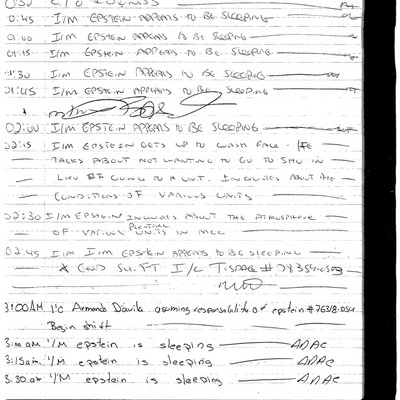 00:45 I/M EPSTEIN APPEARS TO BE SLEEPING
01:00 I/M EPSTEIN APPEARS TO BE SLEEPING
01:15 I/M EPSTEIN APPEARS TO BE SLEEPING
01:30 I/M EPSTEIN APPEARS TO BE SLEEPING
01:45 I/M EPSTEIN APPEARS TO BE SLEEPING
02:00 I/M EPSTEIN APPEARS TO BE SLEEPING
02:15 I/M EPSTEIN GETS UP TO WASH FACE. HE
TALKS ABOUT NOT WANTING TO GO TO SHU IN
LIEU OF GOING TO A UNIT. INQUIRES ABOUT THE
CONDITIONS OF VARIOUS UNITS
02:30 I/M EPSTEIN INQUIRES ABOUT THE ATMOSPHERE
OF VARIOUS POTENTIAL UNITS IN MCC
02:45 I/M EPSTEIN APPEARS TO BE SLEEPING
* END SHIFT I/C
3:00AM I'C Armando Davila assuming responsability of epstein #76318-054
Begin shift
3:00 AM I/M epstein is sleeping ADAC
3:15 am I/M epstein is sleeping ADAC
3:30 am I/M epstein is sleeping ADAC